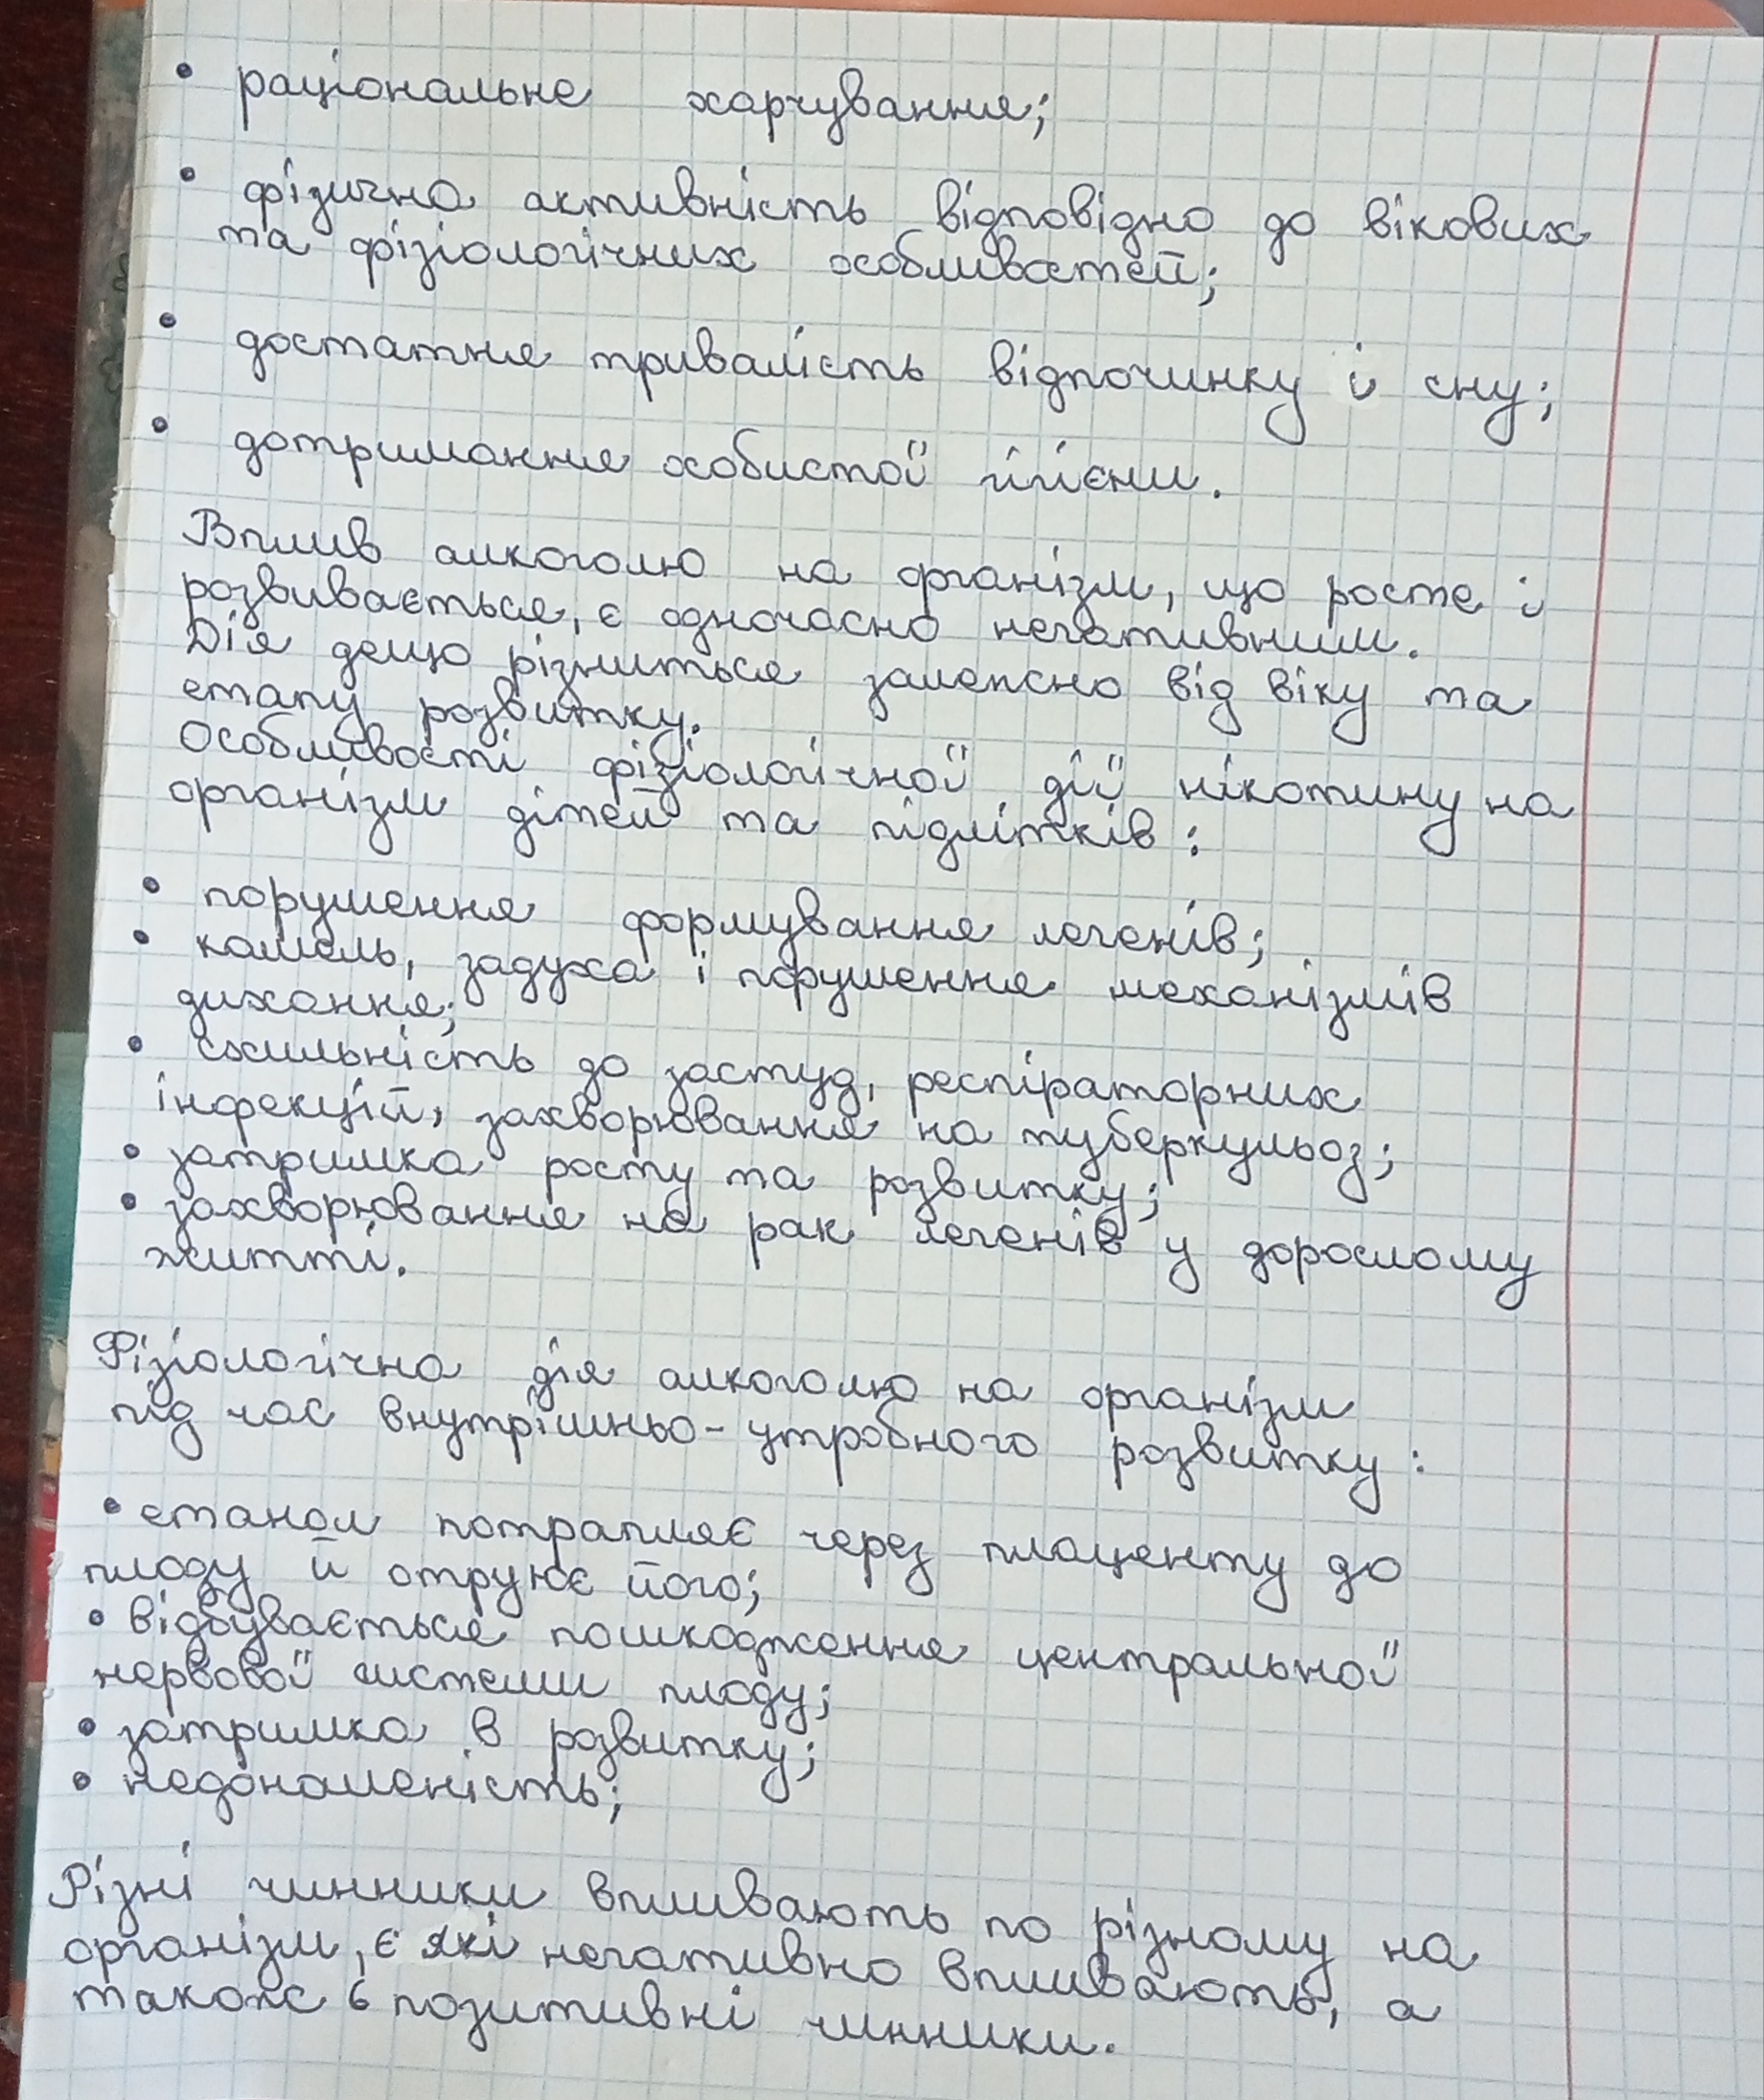 • раціональне харчування;
• фізична активність відповідно до вікових
та фізіологічних особливостей;
• достатня тривалість відпочинку і сну;
• дотримання особистої гігієни.
Вплив алкоголю на організм, що росте і
розвивається, є одночасно негативним.
Дія дещо різниться залежно від віку та
етапу розвитку.
Особливості фізіологічної дії нікотину на
організм дітей та підлітків:
• порушення формування легенів;
• кашель, задуха і порушення механізмів
дихання;
• схильність до застуд, респіраторних
інфекцій, захворювання на туберкульоз;
• затримка росту та розвитку;
• захворювання на рак легенів у дорослому
житті.
Фізіологічна дія алкоголю на організм
під час внутрішньо-утробного розвитку:
• етанол потрапляє через плаценту до
плоду й отруює його;
• відбувається пошкодження центральної
нервової системи плоду;
• затримка в розвитку;
• недоношеність;
Різні чинники впливають по різному на
організм, є які негативно впливають, а
також є позитивні чинники.